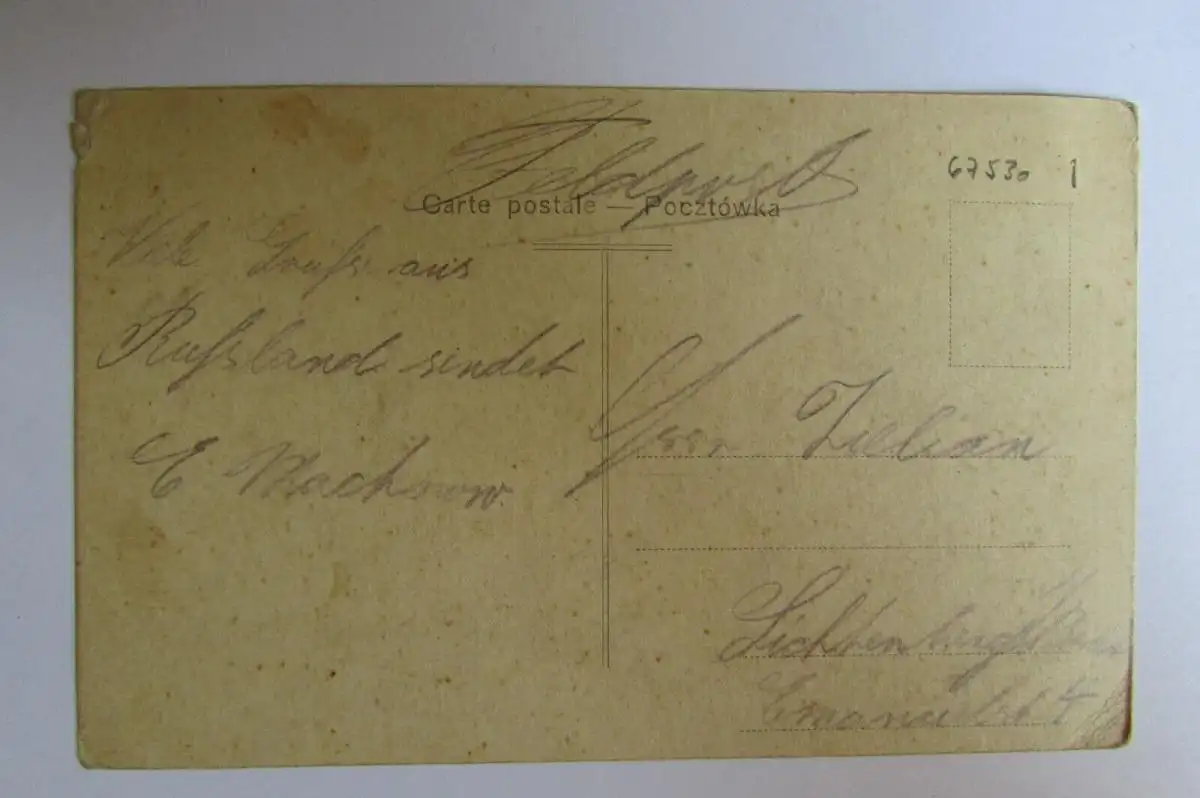 Feldpost
67530 1
Carte postale — Pocztówka
Viele Grüße aus
Rußland sendet
E Machnow.
Herr Zielian
Lichtenberg b/Ber